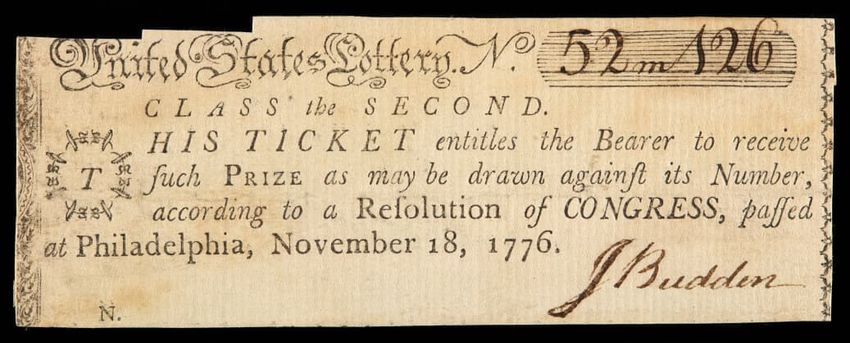 United States Lottery. Nº. 52m126
CLASS the SECOND.
THIS TICKET entitles the Bearer to receive
ſuch PRIZE as may be drawn againſt its Number,
according to a Reſolution of CONGRESS, paſſed
at Philadelphia, November 18, 1776.
J Budden
N.